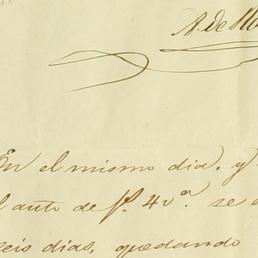 A. de
En el mismo dia, y
auto de f. 4 vª. se
seis dias, quedando